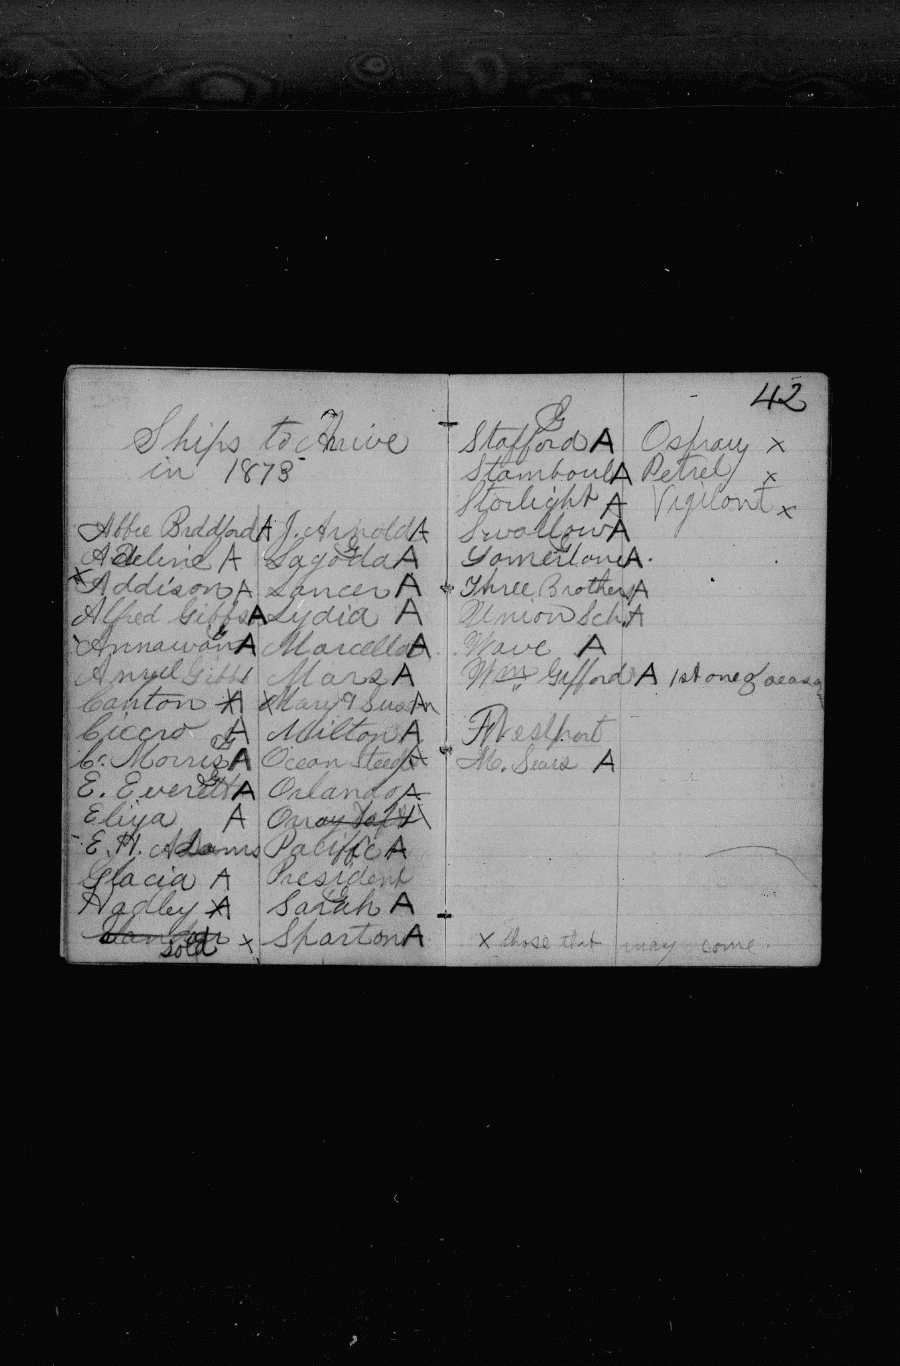 42
Ships to Arrive
in 1873
Abbie Braddford A
Adeline A
x Addison A
Alfred Gibbs A
Annawan A
Ansel Gibbs
Canton A
Cicero A
C. Morris A
E. Everett A
Eliza A
E. H. Adams
Glacia A
Hadley A
sold x
J. Arnold A
Lagoda A
Lancer A
Lydia A
Marcella A
Mars A
x Mary & Susan A
Milton A
Ocean Steed A
Orlando A
Onray Taft A
Pacific A
President
Sarah A
Sparton A
Stafford A
Stamboul A
Starlight A
Swallow A
Tamerlane A
Three Brothers A
Union Sch. A
Wave A
Wm Gifford A 1st one of season
Westport
M. Sears A
x those that may come.
Ospray x
Petrel x
Vigilant x